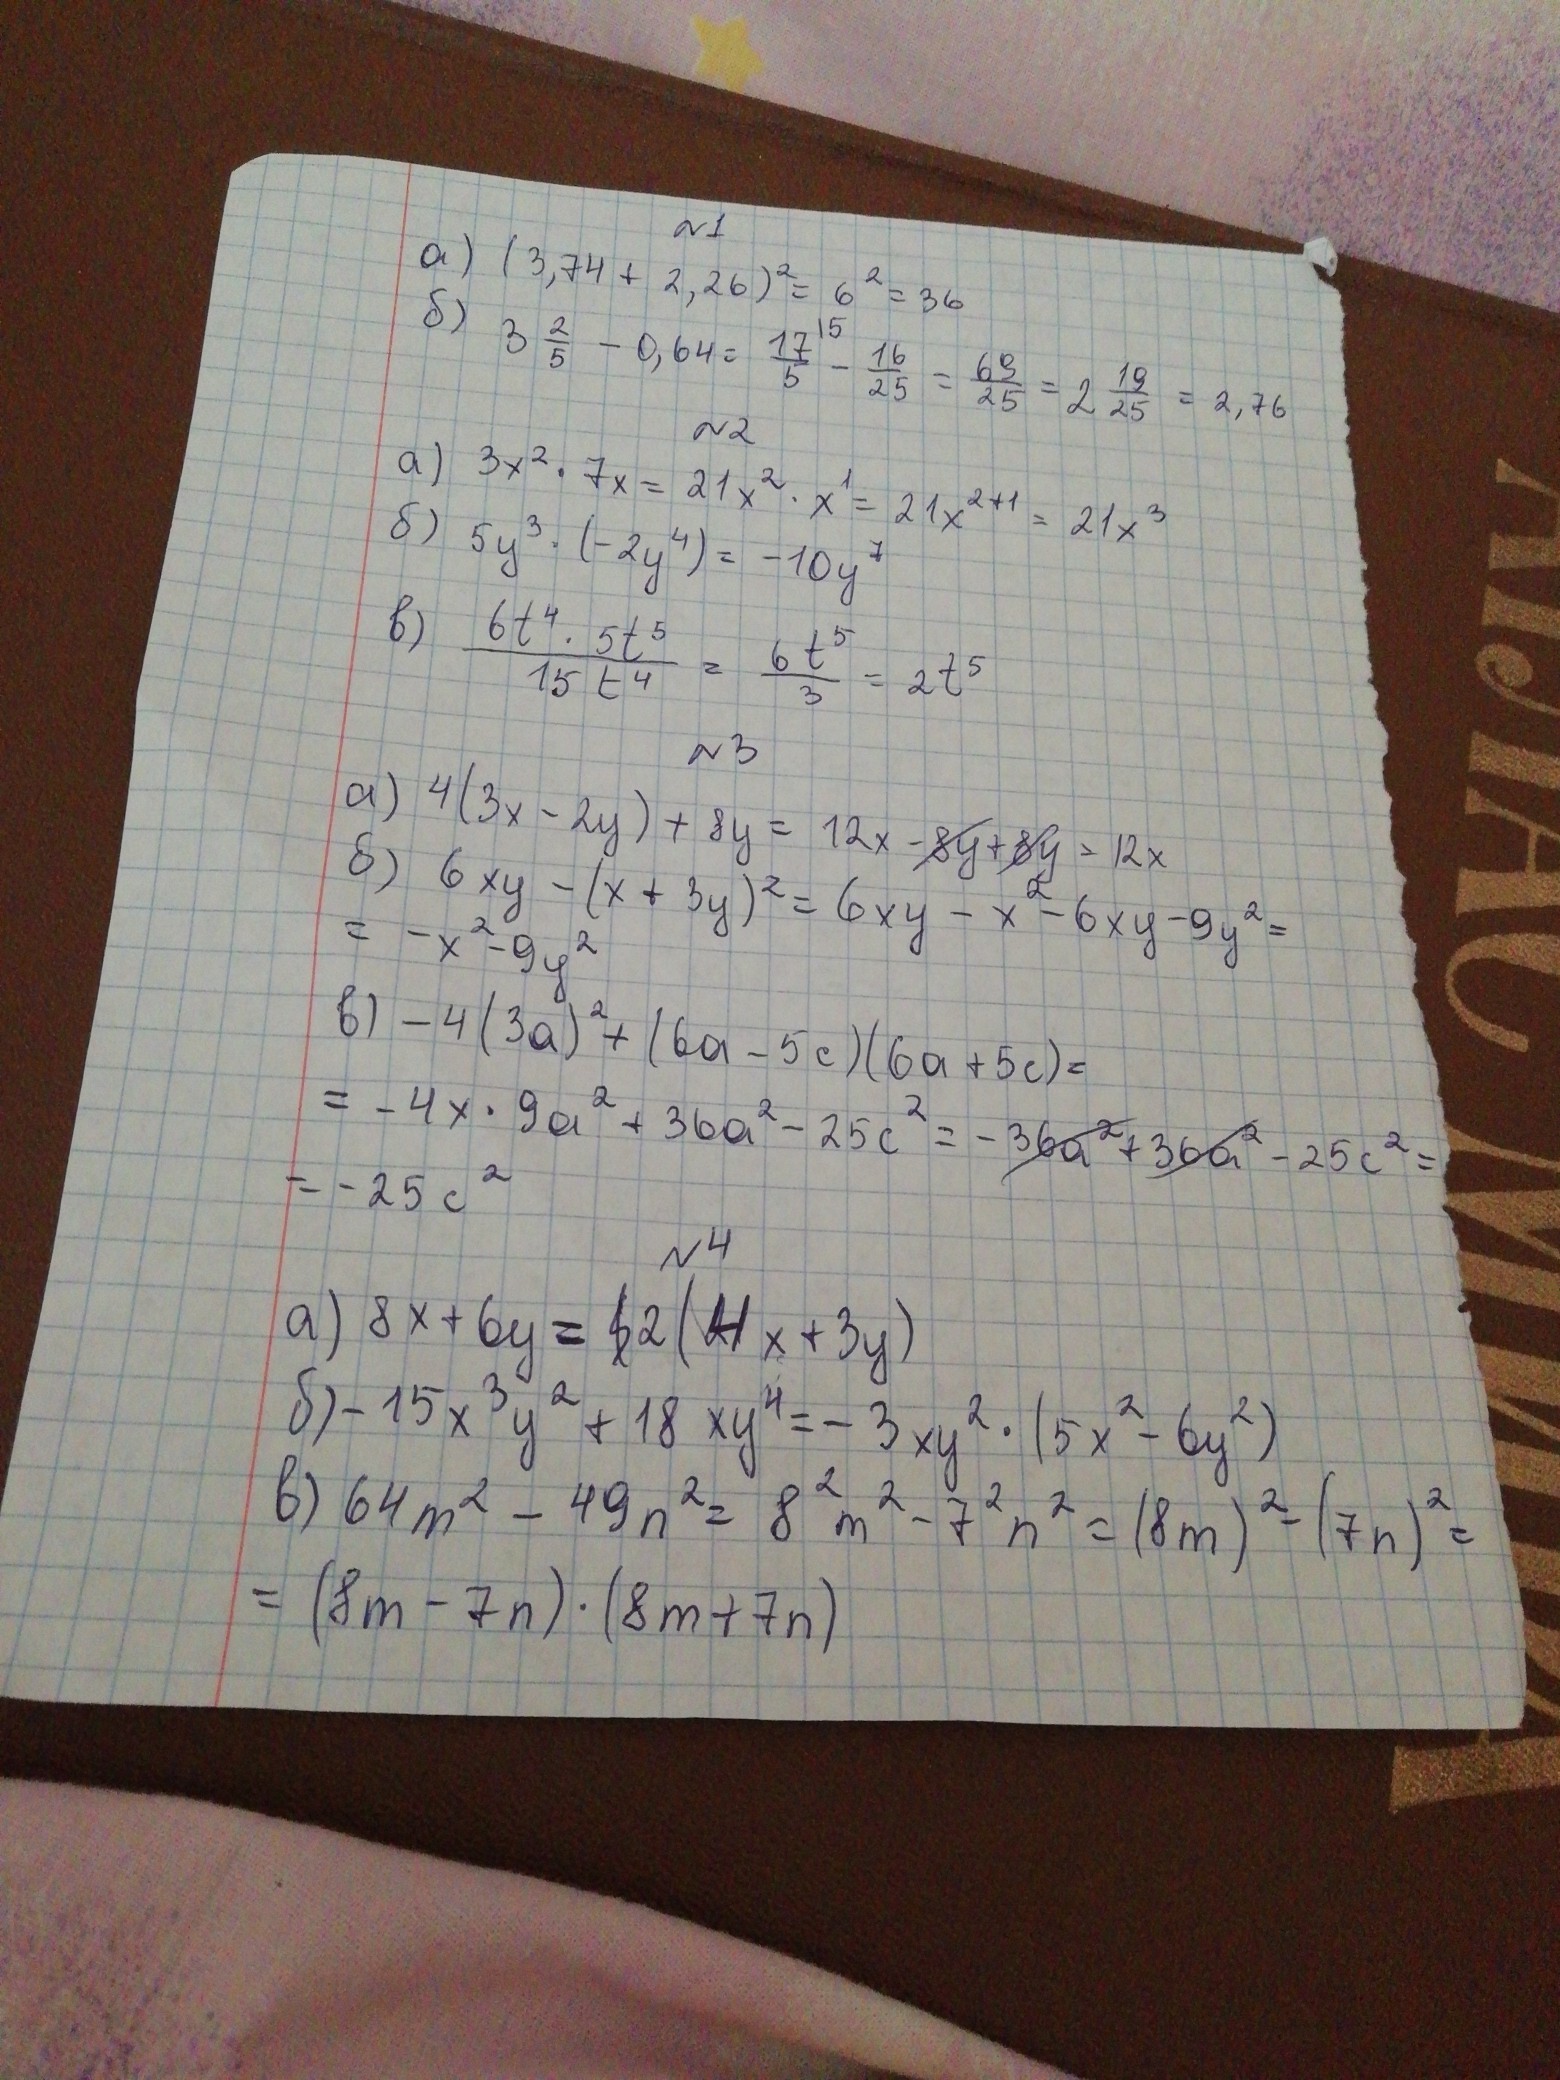 №1
а) (3,74 + 2,26)² = 6² = 36
б) 3 2/5 - 0,64 = 17/5 |5 - 16/25 = 69/25 = 2 19/25 = 2,76
№2
а) 3x² · 7x = 21x² · x¹ = 21x²⁺¹ = 21x³
б) 5y³ · (-2y⁴) = -10y⁷
в) 6t⁴ · 5t⁵ / 15t⁴ = 6t⁵/3 = 2t⁵
№3
а) 4(3x - 2y) + 8y = 12x - 8y + 8y = 12x
б) 6xy - (x + 3y)² = 6xy - x² - 6xy - 9y² =
= -x² - 9y²
в) -4(3a)² + (6a - 5c)(6a + 5c) =
= -4x · 9a² + 36a² - 25c² = -36a² + 36a² - 25c² =
= -25c²
№4
а) 8x + 6y = 2(4x + 3y)
б) -15x³y² + 18xy⁴ = -3xy² · (5x² - 6y²)
в) 64m² - 49n² = 8²m² - 7²n² = (8m)² - (7n)² =
= (8m - 7n) · (8m + 7n)